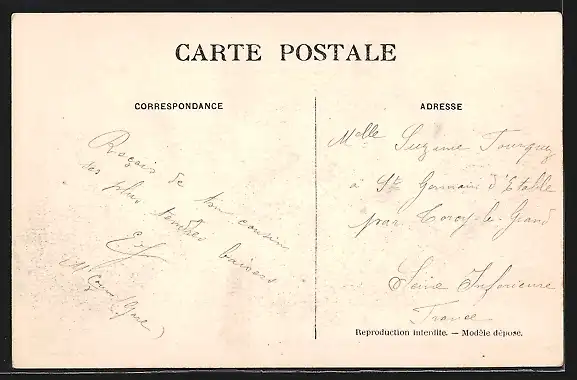 CARTE POSTALE
CORRESPONDANCE
ADRESSE
Reçois de ton cousin
ses plus tendres baisers
(Gare)
Melle Suzanne
à St Germain d'Etable
par Torcy-le-Grand
Seine Inférieure
France
Reproduction interdite. — Modèle déposé.